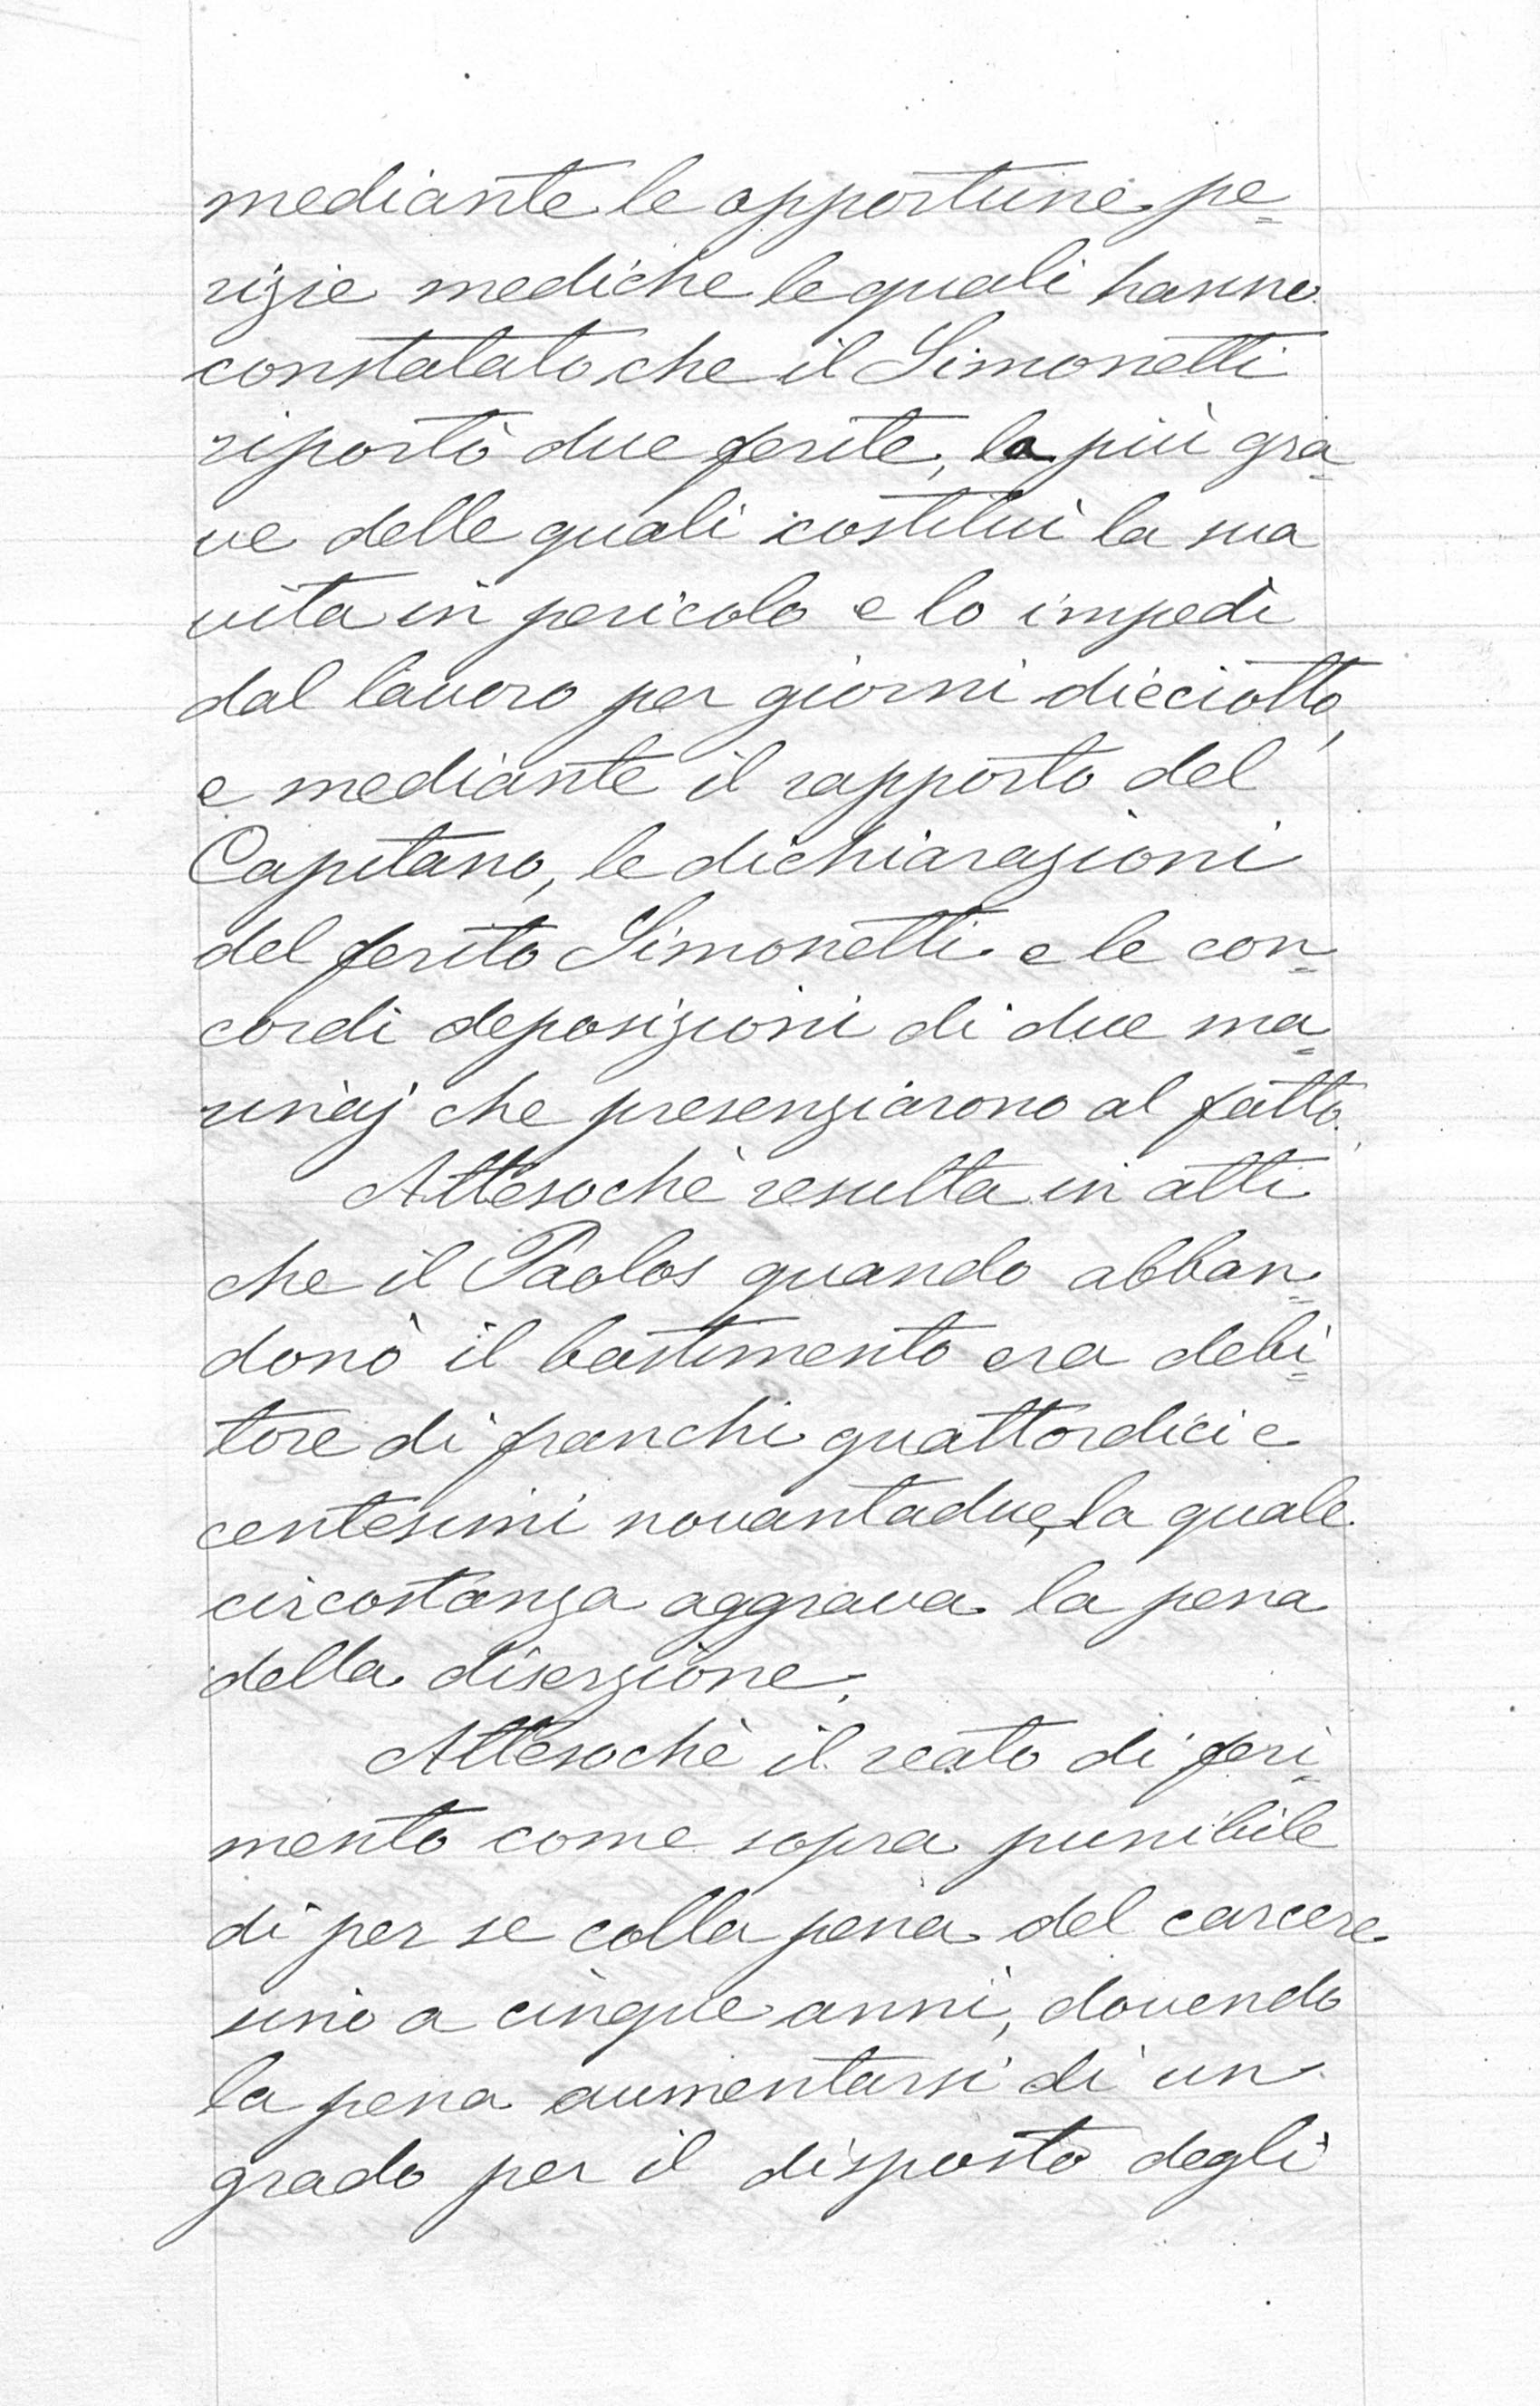 mediante le opportune pe=
rizie mediche le quali hanno
constatato che il Simonetti
riportò due ferite, la più gra=
ve delle quali costituì la sua
vita in pericolo e lo impedì
dal lavoro per giorni dieciotto,
e mediante il rapporto del
Capitano, le dichiarazioni
del ferito Simonetti e le con=
cordi deposizioni di due ma=
rinaj che presenziarono al fatto.
Attesochè resulta in atti
che il Paolos quando abban=
donò il bastimento era debi=
tore di franchi quattordici e
centesimi novantadue, la quale
circostanza aggrava la pena
della diserzione.
Attesochè il reato di feri=
mento come sopra punibile
di per se colla pena del carcere
uno a cinque anni, dovendo
la pena aumentarsi di un
grado per il disposto degli